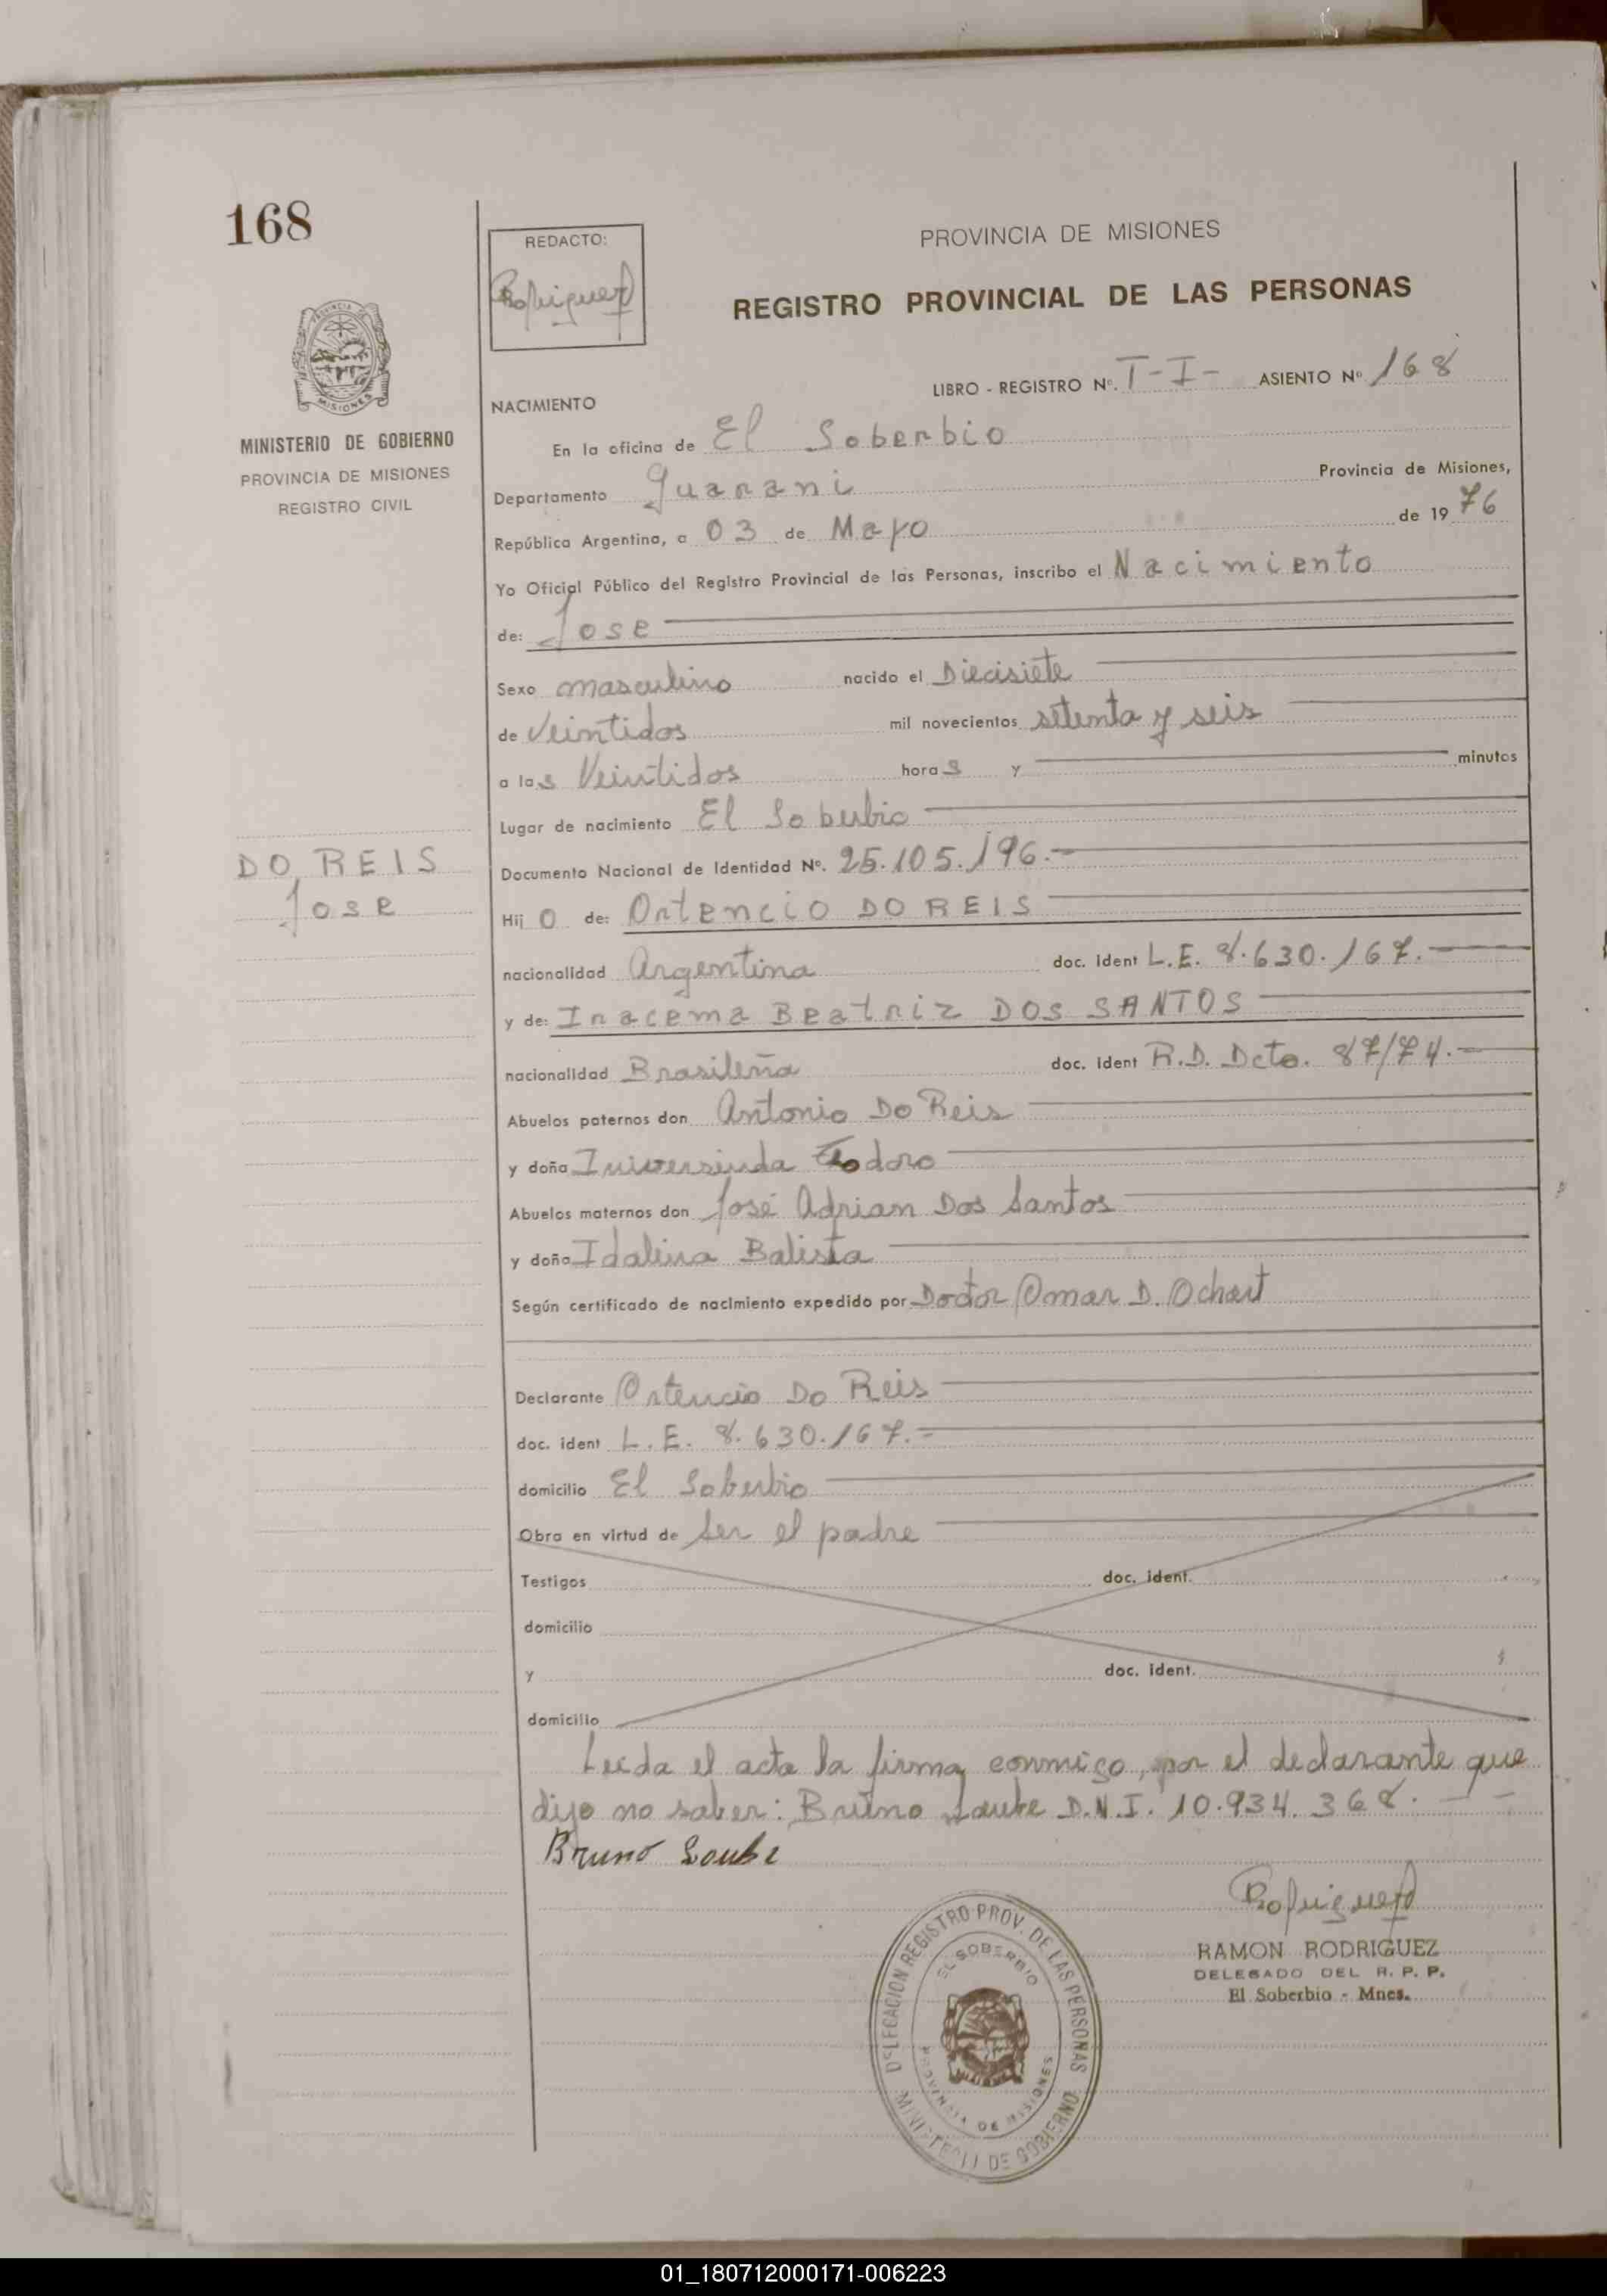 168
REDACTO:
Rodriguez
PROVINCIA DE MISIONES
REGISTRO PROVINCIAL DE LAS PERSONAS
MISIONES
MINISTERIO DE GOBIERNO
PROVINCIA DE MISIONES
REGISTRO CIVIL
LIBRO - REGISTRO Nº. T-I- ASIENTO Nº 168
NACIMIENTO
En la oficina de El Soberbio
Departamento Guarani Provincia de Misiones,
República Argentina, a 03 de Mayo de 1976
Yo Oficial Público del Registro Provincial de las Personas, inscribo el Nacimiento
de: Jose
Sexo masculino nacido el Diecisiete
de Veintidos mil novecientos setenta y seis
a las Veintidos horas y minutos
Lugar de nacimiento El Soberbio
DO REIS
Jose
Documento Nacional de Identidad Nº. 25.105.196.-
Hijo de: Ortencio DO REIS
nacionalidad Argentina doc. ident L.E. 8.630.167.-
y de: Iracema Beatriz DOS SANTOS
nacionalidad Brasileña doc. ident R.D. Dcto. 87/74.-
Abuelos paternos don Antonio Do Reis
y doña Teodoro
Abuelos maternos don José Adrian Dos Santos
y doña Idalina Batista
Según certificado de nacimiento expedido por Doctor Omar D. Ochart
Declarante Ortencio Do Reis
doc. ident L.E. 8.630.167.-
domicilio El Soberbio
Obra en virtud de ser el padre
Testigos doc. ident.
domicilio
y doc. ident.
domicilio
Leida el acta la firma conmigo, por el declarante que
dijo no saber: Bruno Laube D.N.I. 10.934.368. - -
Bruno Loube
Rodriguez
RAMON RODRIGUEZ
DELEGADO DEL R. P. P.
El Soberbio - Mnes.
DELEGACION REGISTRO PROV. DE LAS PERSONAS
EL SOBERBIO
PROVINCIA DE MISIONES
MINISTERIO DE GOBIERNO
01_180712000171-006223